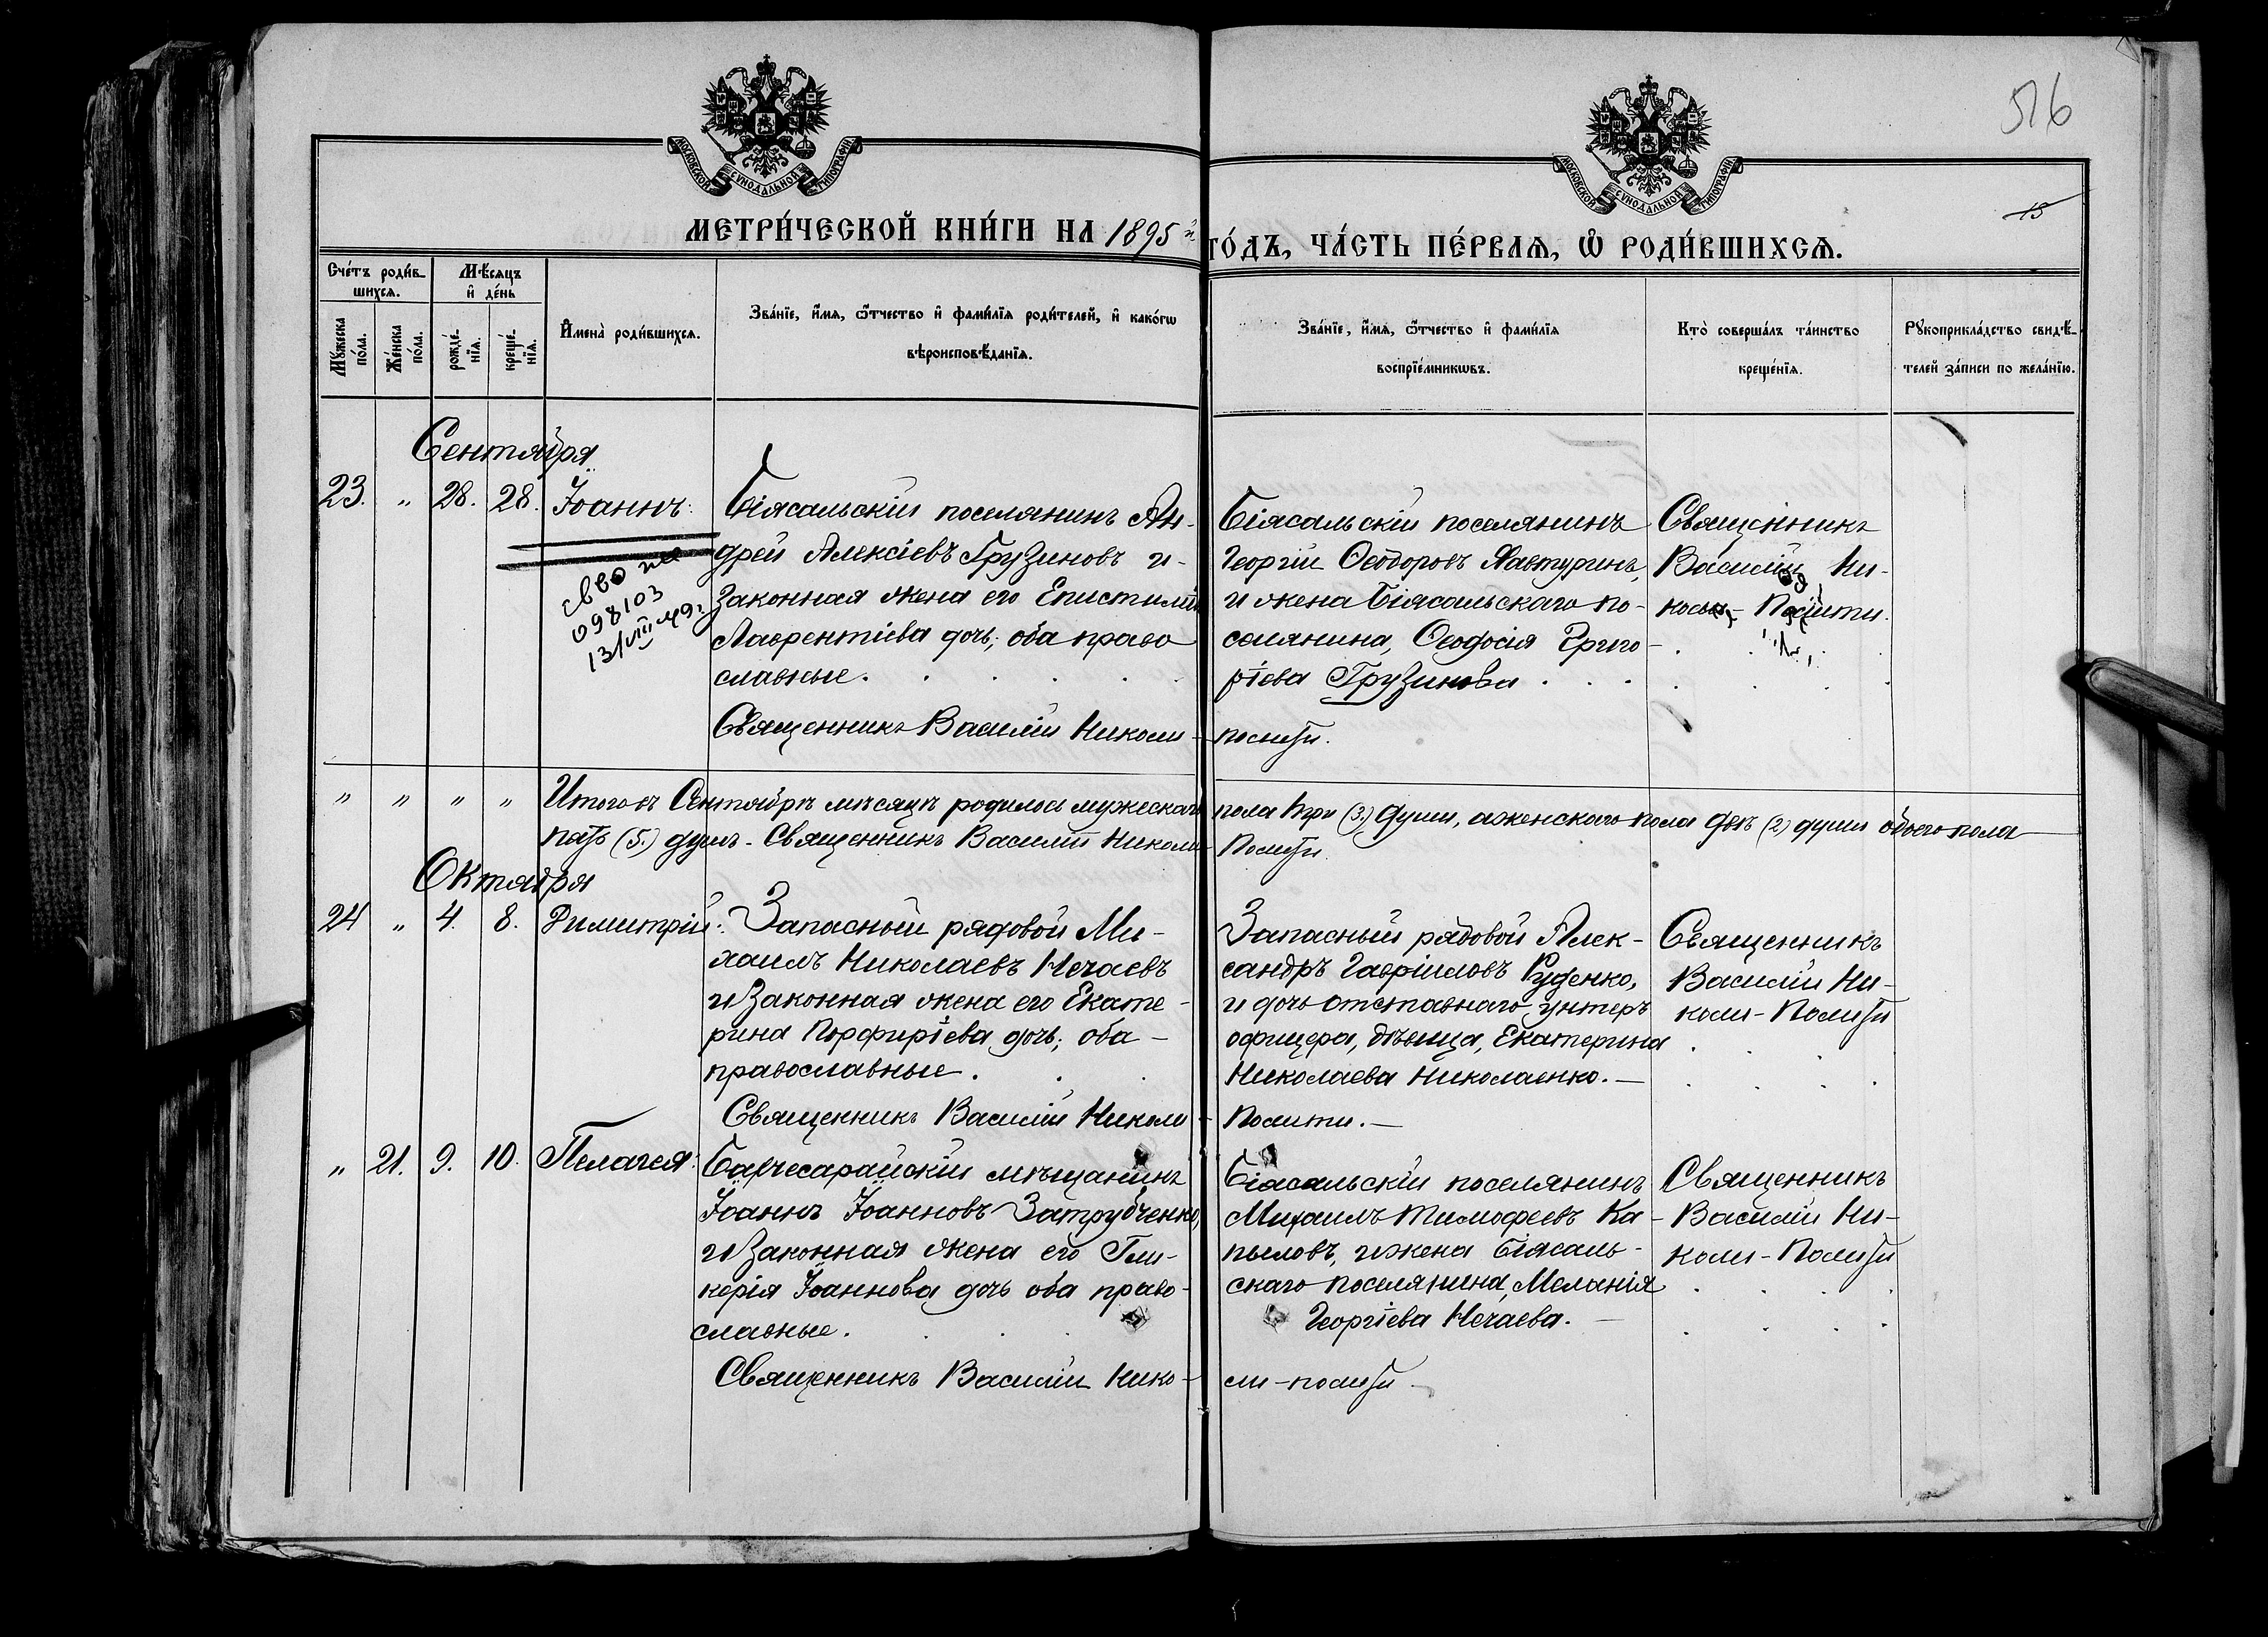 516
15
МОСКОВСКОЙ СУНОДАЛЬНОЙ ТИПОГРАФІИ
МОСКОВСКОЙ СУНОДАЛЬНОЙ ТИПОГРАФІИ
МЕТРИ́ЧЕСКОЙ КНИ́ГИ НА 1895й
ГО́ДЪ, ЧА́СТЬ ПЕ́РВАЯ, Ѡ РОДИ́ВШИХСЯ.
Сче́тъ роди́в-
шихся.
Мѣ́сяцъ
и де́нь
Мꙋ́жеска по́ла.
Же́нска по́ла.
рожде́-нїѧ.
креще́-нїѧ.
Имена̀ роди́вшихсѧ.
Зва́нїе, и́мѧ, ѻ҆́тчество и҆ фами́лїѧ роди́телей, и҆ како́гѡ
вѣроисповѣ́данїѧ.
Зва́нїе, и́мѧ, ѻ҆́тчество и҆ фами́лїѧ
воспрїе́мникѡвъ.
Кто̀ соверша́лъ та́инство
креще́нїѧ.
Рꙋкоприкла́дство свидѣ́-
телей за́писи по жела́нїю.
Сентября
23. " 28. 28. Іоаннъ:
Біясальскій поселянинъ Ан-
дрей Алексіевъ Грузиновъ и
законная жена его Епистимія
Лаврентіева дочь; оба право
славные.
Священникъ Василій Николи-
098103
13/VIII 49г
Біясальскій поселянинъ
Георгій Ѳеодоровъ
и жена Біясальскаго по-
селянина, Ѳеодосія Григо-
ріева Грузинова
Полити.
Священникъ
Василій Ни-
коли-Полити.
" " " " Итого въ Сентябрѣ мѣсяцѣ родилось мужескаго пола три (3.) души, а женскаго пола двѣ (2) души обоего пола
пять (5.) душъ. Священникъ Василій Николи-Полити
Октября
24 " 4. 8. Димитрій:
Запасный рядовой Ми-
хаилъ Николаевъ Нечаевъ
и законная жена его Екате-
рина Порфиріева дочь; оба
православные.
Священникъ Василій Николи-
Запасный рядовой Алек-
сандръ Гавріиловъ Руденко,
и дочь отставнаго унтеръ
офицера, дѣвица, Екатерина
Николаева Николаенко.
Полити.
Священникъ
Василій Ни-
коли-Полити
" 21. 9. 10. Пелагея:
Бахчесарайскій мѣщанинъ
Іоаннъ Іоанновъ Затрубченко,
и законная жена его Гли-
керія Іоаннова дочь оба право-
славные.
Священникъ Василій Нико-
Біясальскій поселянинъ
Михаилъ Тимофеевъ Ка-
пыловъ, и жена Біясаль-
скаго поселянина, Меланія
Георгіева Нечаева.
ли-полити
Священникъ
Василій Ни-
коли-Полити